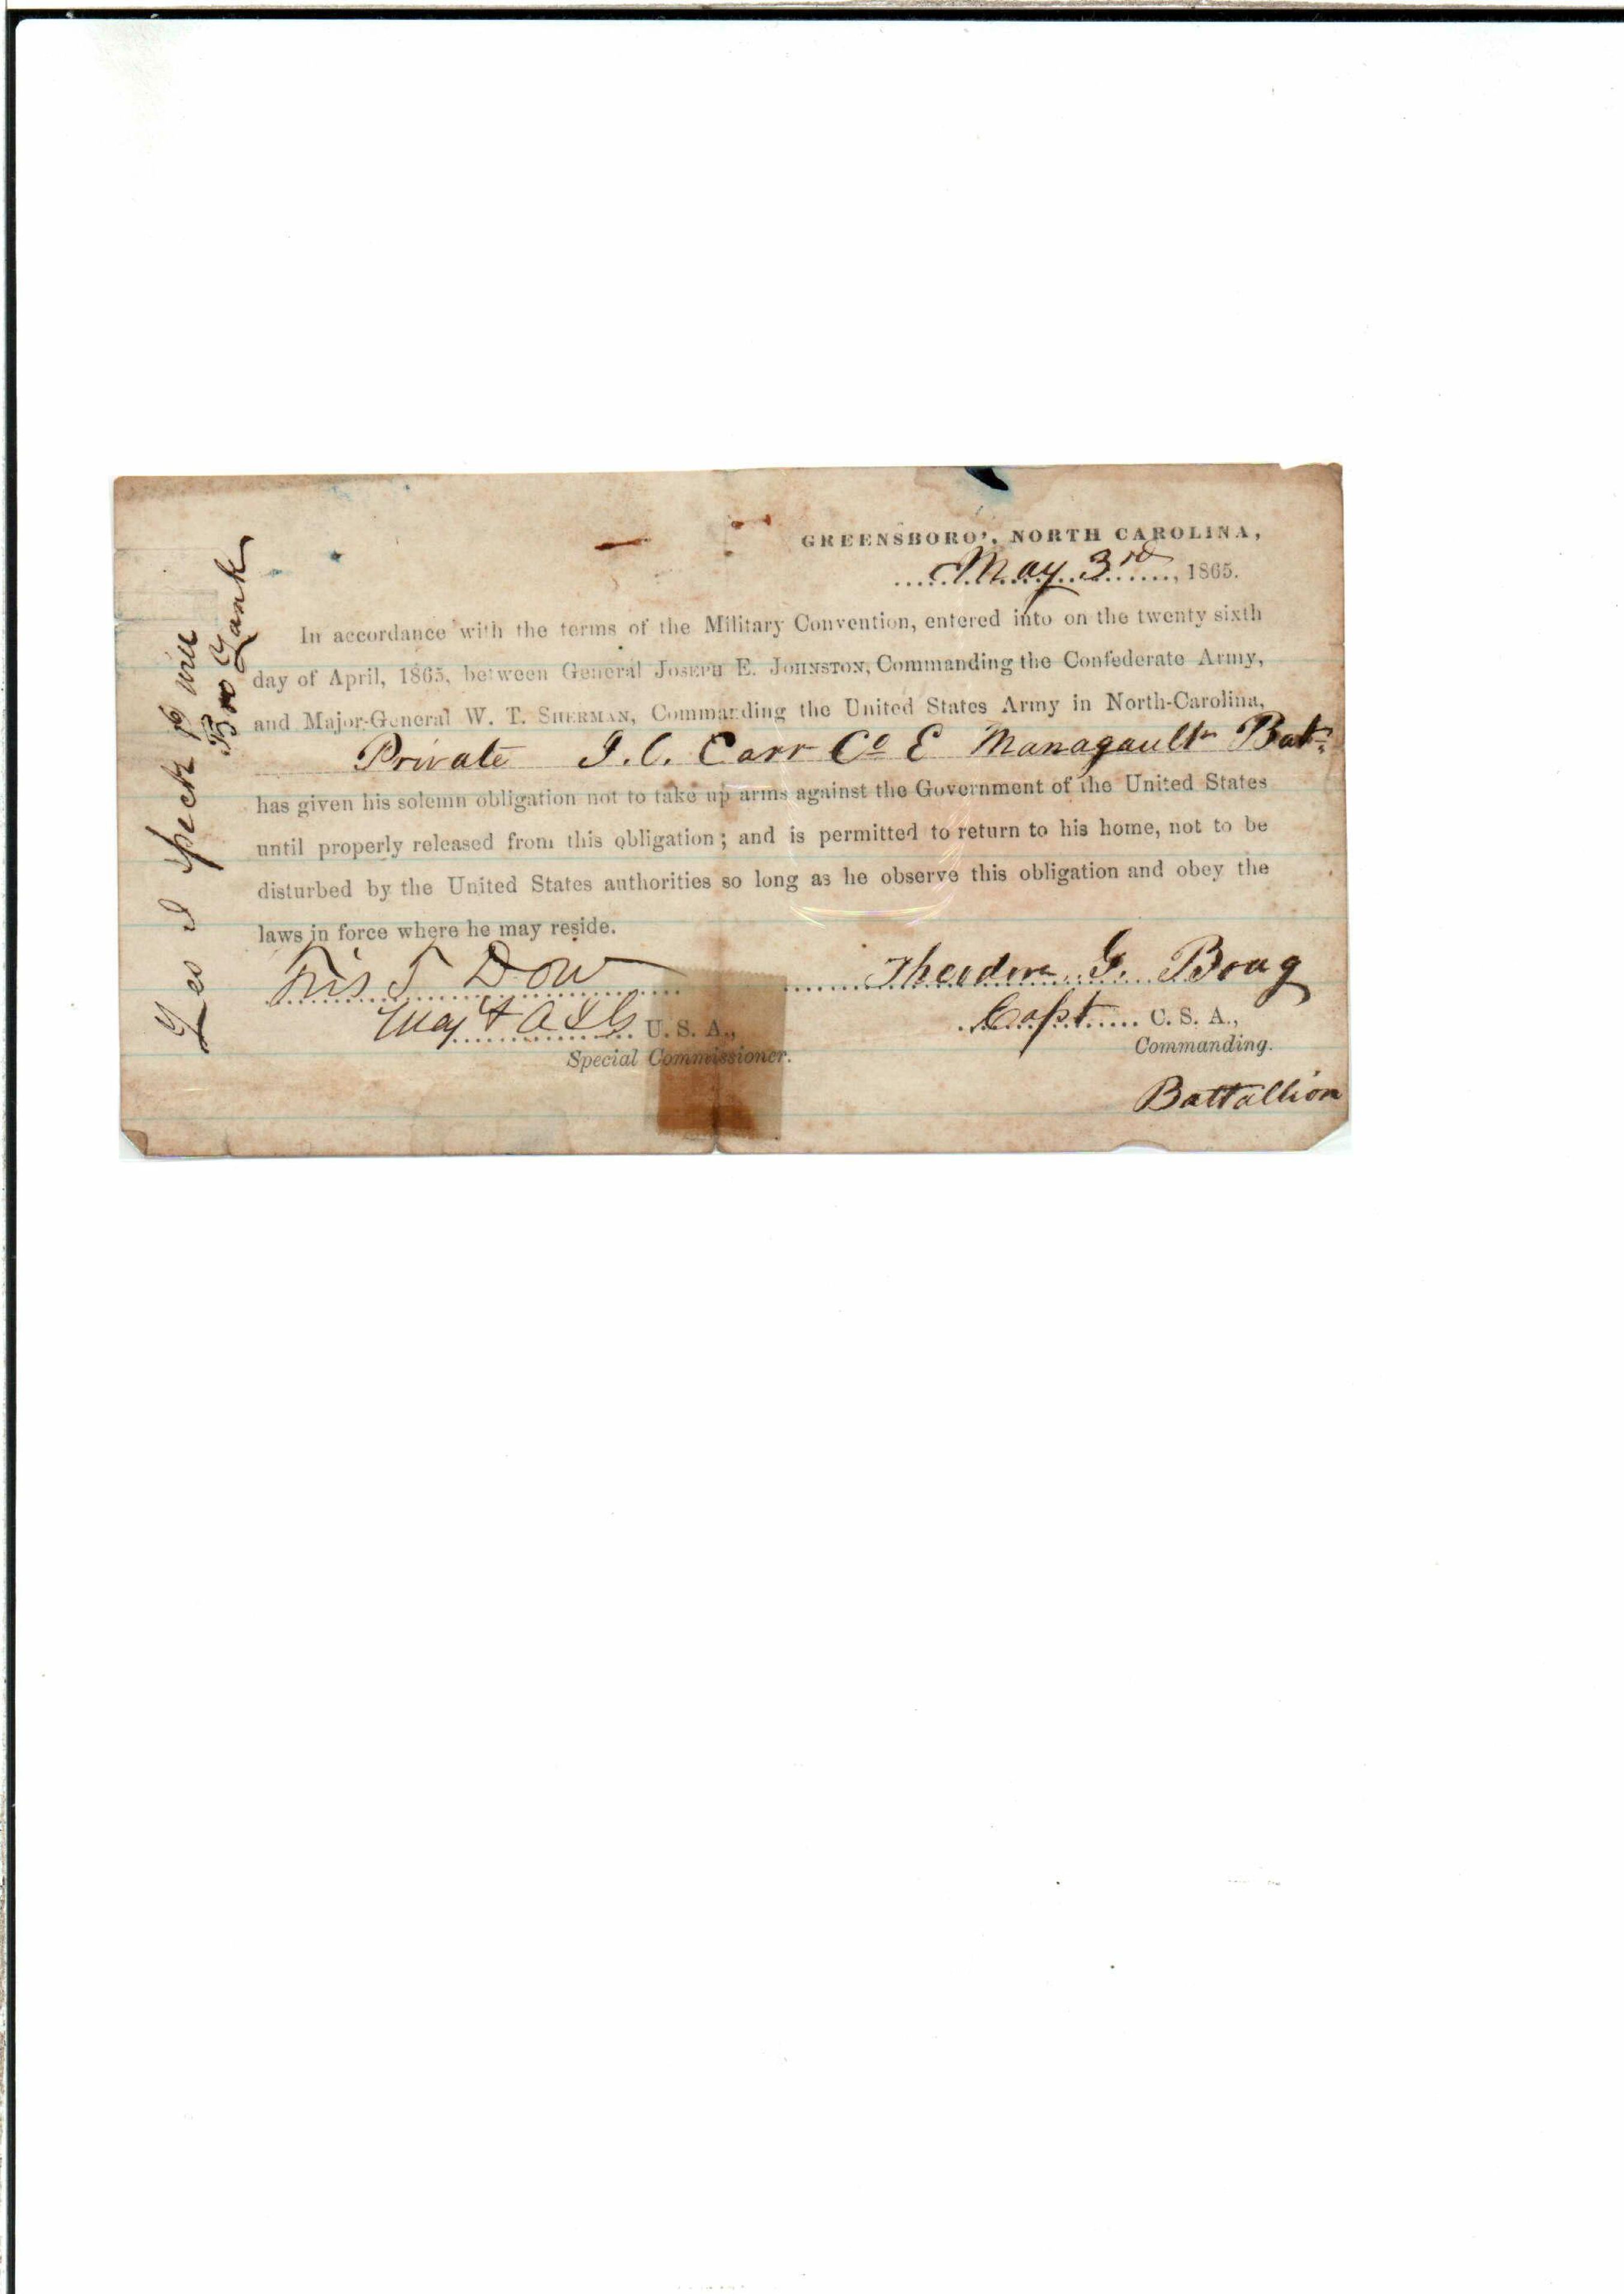 GREENSBORO', NORTH CAROLINA,
May 3rd, 1865.
In accordance with the terms of the Military Convention, entered into on the twenty sixth
day of April, 1865, between General JOSEPH E. JOHNSTON, Commanding the Confederate Army,
and Major-General W. T. SHERMAN, Commanding the United States Army in North-Carolina,
Private J. C. Carr Co E Managault Bat
has given his solemn obligation not to take up arms against the Government of the United States
until properly released from this obligation; and is permitted to return to his home, not to be
disturbed by the United States authorities so long as he observe this obligation and obey the
laws in force where he may reside.
T Dow
U. S. A.,
Special Commissioner.
Theodore G. Boag
Capt C. S. A.,
Commanding.
Battallion
I will
Yank